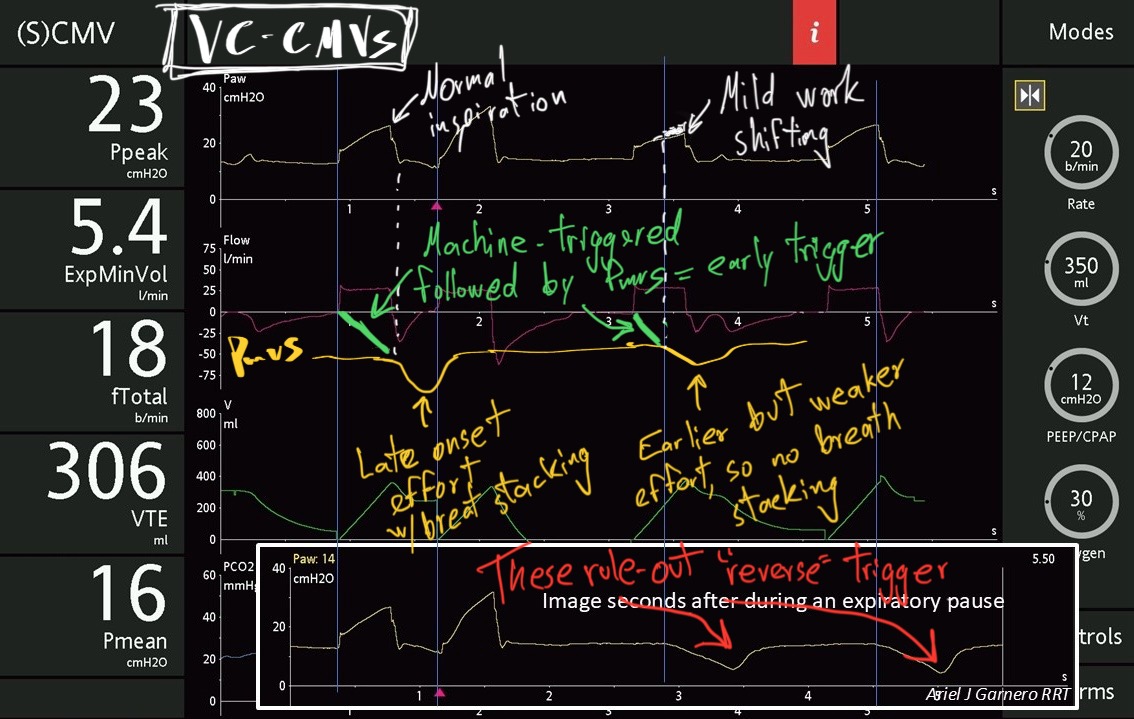 (S)CMV
VC-CMVs
i
Modes
23
Ppeak
cmH2O
5.4
ExpMinVol
l/min
18
fTotal
b/min
306
VTE
ml
16
Pmean
cmH2O
Paw
cmH2O
40
20
0
1 2 3 4 5
s
Normal
inspiration
Mild work
shifting
Flow
l/min
75
50
25
0
-25
-50
-75
1 2 3 4 5
s
Machine-triggered
followed by Pmus = early trigger
Pmus
V
ml
800
600
400
200
0
s
Late onset
effort
w/breat stacking
Earlier but weaker
effort, so no breath
stacking
PCO2
60
40
20
0
1 2 3 4 5
Paw: 14
cmH2O
40
20
0
1 2 3 4 5
s
5.50
These rule-out "reverse" trigger
Image seconds after during an expiratory pause
Ariel J Garnero RRT
20
b/min
Rate
350
ml
Vt
12
cmH2O
PEEP/CPAP
30
%
ygen
trols
rms